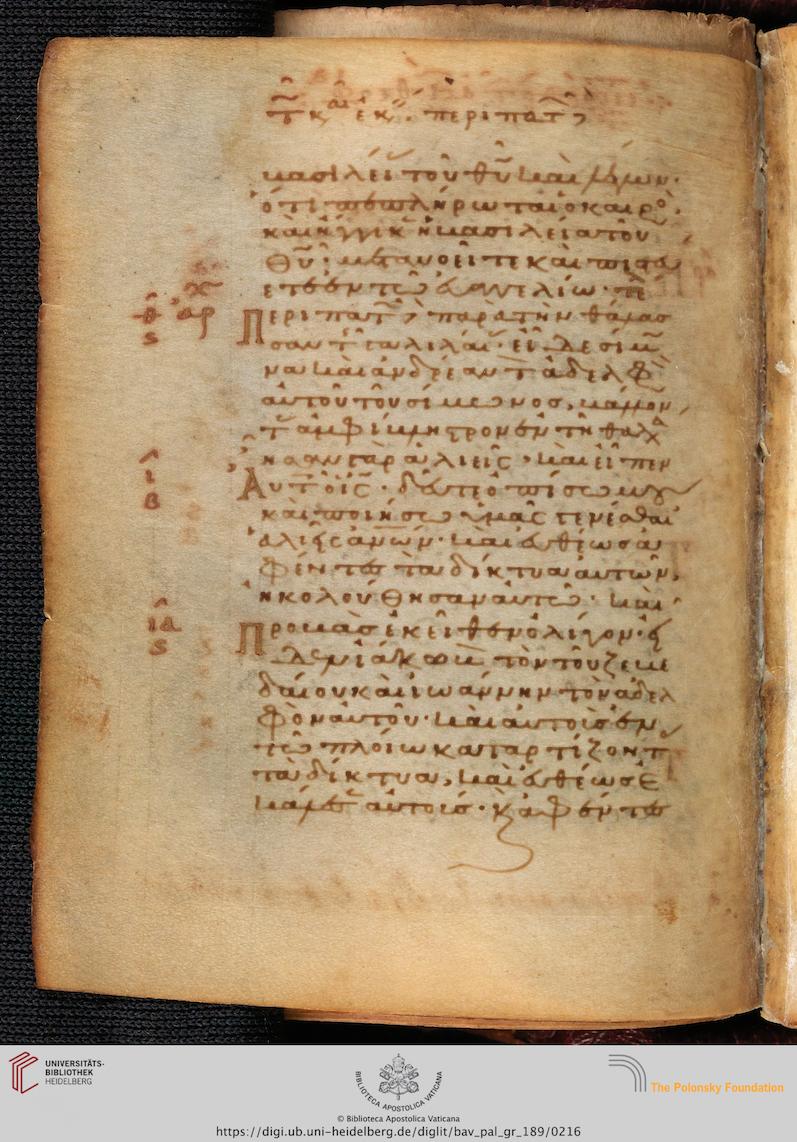 περιπατ
βασιλεί τοῦ θυ καὶ λέγων·
ὅτι πεπλήρωται ὁ καιρο
καὶ ἤγγικ ἡ βασιλεία τοῦ
Θυ· μετανοεῖτε καὶ πιστεύ
ετε ἐν τῶ εὐαγγελίω·
Περιπατ παρὰ τὴν θάλασ
σαν τ γαλιλαί· εἶ σίμω
να καὶ ἀνδρέαν τ ἀδελφ
αὐτοῦ τοῦ σίμωνος, βάλλον
τ ἀμφίβληστρον ἐν τῆ θαλ
ἦσαν γὰρ ἁλιεῖς· καὶ εἶπεν
Αὐτοῖς· δεῦτε ὀπίσω μου
καὶ ποιήσω ὑμᾶς γενέσθαι
ἁλιεῖς ἀνων· καὶ εὐθέως ἀ
φέντες τὰ δίκτυα αὐτῶν,
ἠκολούθησαν αὐτῶ· καὶ
Προβὰς ἐκεῖθεν ὀλίγον· εἶ
δεν ἰάκωβ τὸν τοῦ ζεβε
δαίου καὶ ἰωάννην τὸν ἀδελ
φὸν αὐτοῦ· καὶ αὐτοὺς ἐν
τῶ πλοίω καταρτίζοντ
τὰ δίκτυα, καὶ εὐθέως ἐ
κάλεσ αὐτούς· κ ἀφέντες
ῑβ
ῑα
ς
UNIVERSITÄTS-
BIBLIOTHEK
HEIDELBERG
BIBLIOTECA APOSTOLICA VATICANA
The Polonsky Foundation
© Biblioteca Apostolica Vaticana
https://digi.ub.uni-heidelberg.de/diglit/bav_pal_gr_189/0216